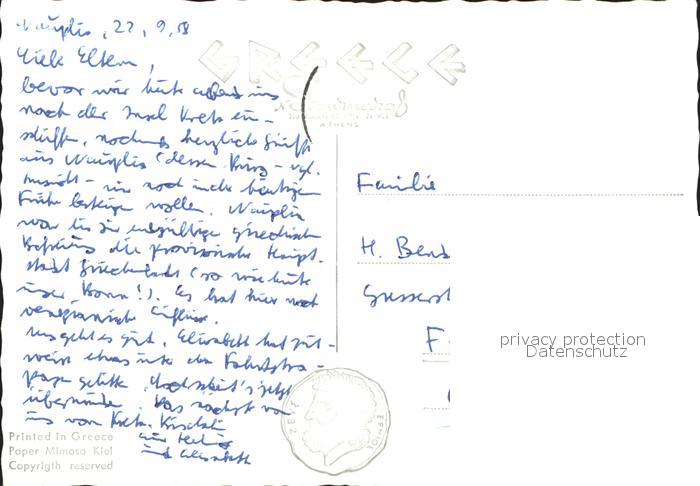 Nauplia, 22, 9, 58
Liebe Eltern,
bevor wir heute abend uns
nach der Insel Kreta ein-
schiffen, nochmals herzliche Grüße
aus Nauplia (dessen Burg - vgl.
Ansicht - wir noch in der heutigen
Frühe besteigen wollen. Nauplia
war bis zur endgültigen griechischen
Befreiung die provisorische Haupt-
stadt Griechenlands (so wie heute
unser Bonn!). Es hat hier noch
venezianische Einflüsse.
Uns geht es gut. Elisabeth hat zeit-
weise etwas unter den Fahrtstra-
pazen gelitten,
überwunden. Das nächste von
uns von Kreta. Herzlich
und Elisabeth
GREECE
ATHENS
Familie
H. Bens
F
privacy protection
Datenschutz
Printed in Greece
Paper Mimosa Kiel
Copyrigth reserved